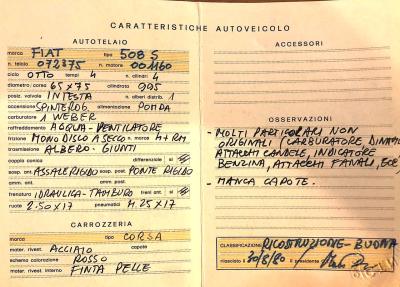 CARATTERISTICHE AUTOVEICOLO
AUTOTELAIO
marca FIAT tipo 508 S
n. telaio 072875 n. motore 001160
ciclo OTTO tempi 4 n. cilindri 4
diametro/corsa 65x75 cilindrata 995
posiz. valvole IN TESTA n. alberi distrib. 1
accensione SPINTEROG. alimentazione POMPA
carburatore 1 WEBER
raffreddamento ACQUA - VENTILATORE
frizione MONO DISCO A SECCO n. marce 4+RM
trasmissione ALBERO - GIUNTI
coppia conica differenziale si
sosp. ant. ASSALE RIGIDO sosp. post. PONTE RIGIDO
amm. ant. amm. post.
frenatura IDRAULICA - TAMBURO freni ant. si
ruote 2.50x17 pneumatici 4.25x17
CARROZZERIA
marca tipo CORSA
mater. rivest. ACCIAIO capote
schema colorazione ROSSO
mater. rivest. interno FINTA PELLE
ACCESSORI
OSSERVAZIONI
- MOLTI PARTICOLARI NON
ORIGINALI (CARBURATORE, DINAMO
ATTACCHI CANDELE, INDICATORE
BENZINA, ATTACCHI FANALI, ECC)
- MANCA CAPOTE.
CLASSIFICAZIONE RICOSTRUZIONE - BUONA
rilasciato il 30/8/80 il presidente